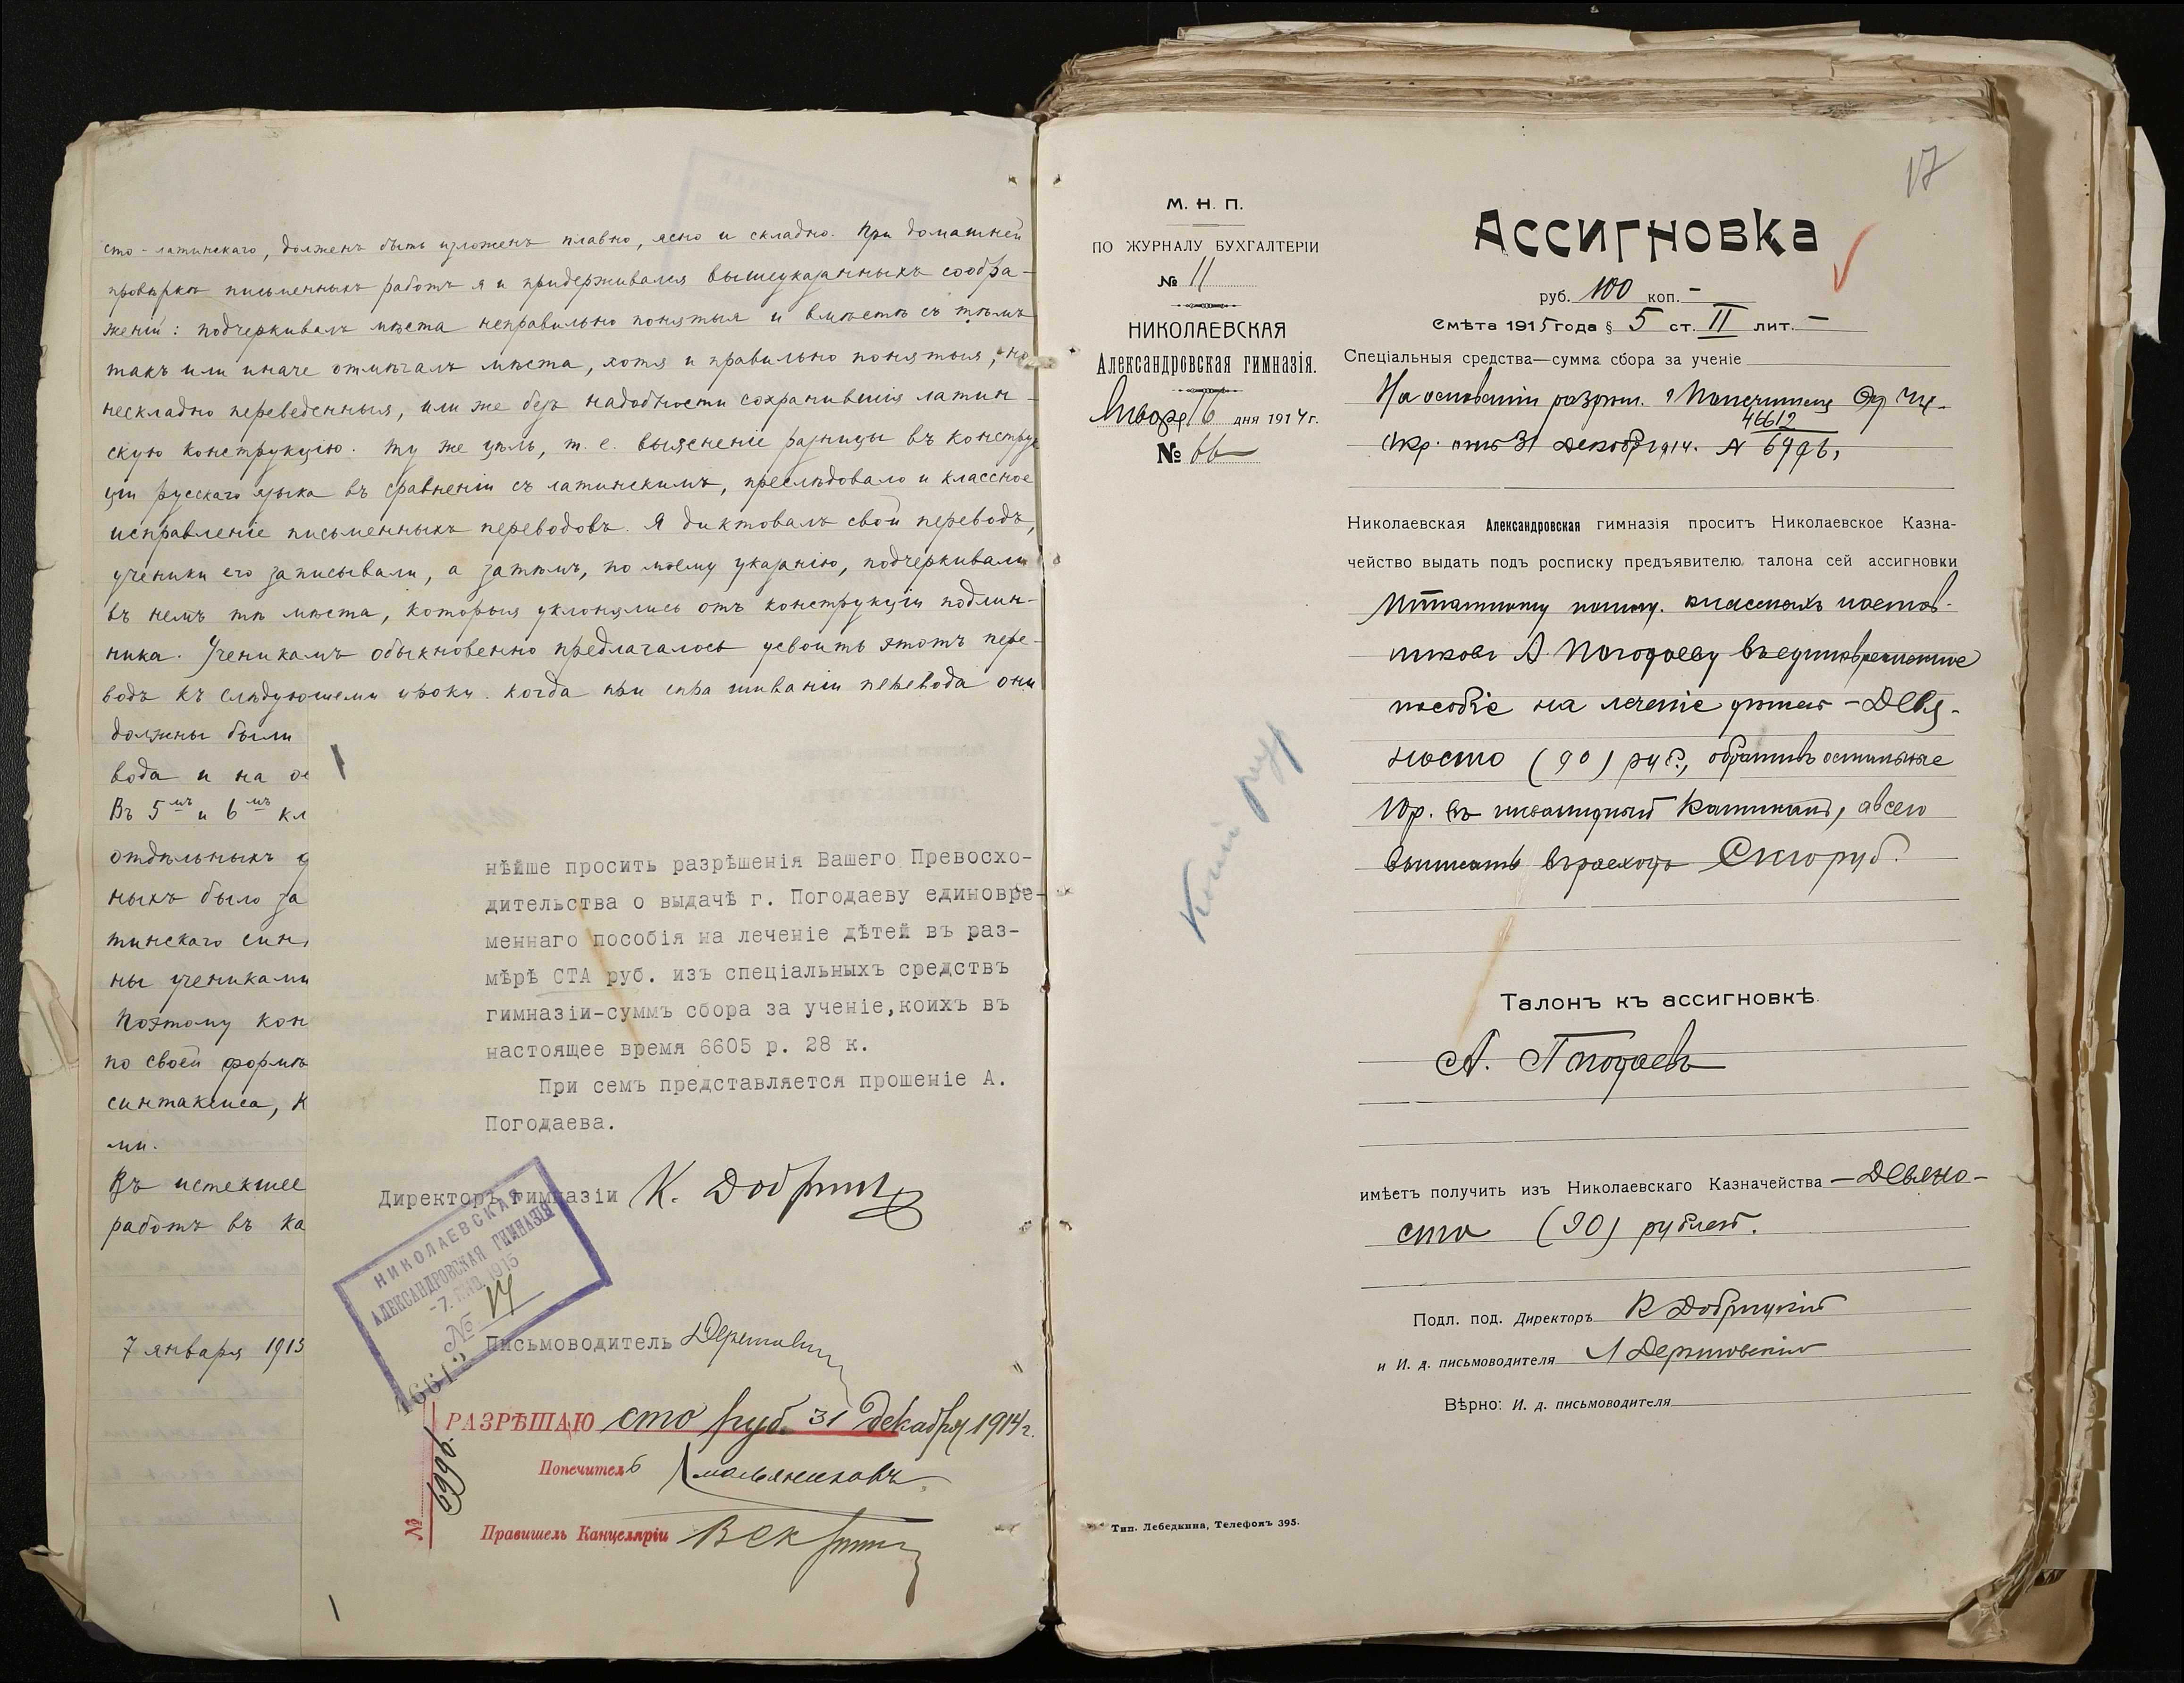 сто-латинскаго, долженъ быть изложенъ плавно, ясно и складно. При домашней
провѣркѣ письменныхъ работъ я и придерживался вышеуказанныхъ сообра-
женій: подчеркивалъ мѣста неправильно понятыя и вмѣстѣ съ тѣмъ
такъ или иначе отмѣчалъ мѣста, хотя и правильно понятыя, но
нескладно переведенныя, или же безъ надобности сохранившія латин-
скую конструкцію. Ту же цѣль, т. е. выясненіе разницы въ конструк
ціи русскаго языка въ сравненіи съ латинскимъ, преслѣдовало и классное
исправленіе письменныхъ переводовъ. Я диктовалъ свой переводъ,
ученики его записывали, а затѣмъ, по моему указанію, подчеркивали
въ немъ тѣ мѣста, которыя уклонялись отъ конструкціи подлин-
ника. Ученикамъ обыкновенно предлагалось усвоить этотъ пере-
водъ къ слѣдующему уроку. когда при спрашиваніи перевода они
должны были
вода и на ос
Въ 5мъ и 6мъ кл
отдѣльныхъ
ныхъ было за
тинскаго син
ны учениками
Поэтому кон
по своей формѣ
синтаксиса, к
ми.
Въ истекшее
работъ въ ка
7 января 1915
нѣйше просить разрѣшенія Вашего Превосхо-
дительства о выдачѣ г. Погодаеву единовре-
меннаго пособія на леченіе дѣтей въ раз-
мѣрѣ СТА руб. изъ спеціальныхъ средствъ
гимназіи-суммъ сбора за ученіе,коихъ въ
настоящее время 6605 р. 28 к.
При семъ представляется прошеніе А.
Погодаева.
Директоръ гимназіи К. Добриц
НИКОЛАЕВСКАЯ
АЛЕКСАНДРОВСКАЯ ГИМНАЗІЯ
-7. ЯНВ. 1915
№ 14
Письмоводитель
46612
РАЗРѢШАЮ сто руб. 31 декабря 1914 г.
Попечитель
Правитель Канцеляріи
№ 6996.
17
М. Н. П.
ПО ЖУРНАЛУ БУХГАЛТЕРІИ
№ 11
НИКОЛАЕВСКАЯ
Александровская гимназія.
Января 6 дня 1914 г.
№ 66
Тип. Лебедкина, Телефонъ 395.
Ассигновка
руб. 100 коп. -
Смѣта 1915 года § 5 ст. II лит. -
Спеціальныя средства—сумма сбора за ученіе
На основаніи разрѣш. г. Попечителя Од. Уч.
46612
Окр. отъ 31 декабр 1914. № 6996,
Николаевская Александровская гимназія проситъ Николаевское Казна-
чейство выдать подъ росписку предъявителю талона сей ассигновки
Штатному помощ. классныхъ настав-
никовъ А. Погодаеву въ единовременное
пособіе на леченіе дѣтей - Девя-
носто (90) руб., обративъ остальные
10 р. въ инвалидный капиталъ, а всего
выписать въ расходъ Сто руб.
Талонъ къ ассигновкѣ
А. Погодаевъ
имѣетъ получить изъ Николаевскаго Казначейства - Девяно-
сто (90) рублей.
Подл. под. Директоръ К Добрицкій
и И. д. письмоводителя
Вѣрно: И. д. письмоводителя